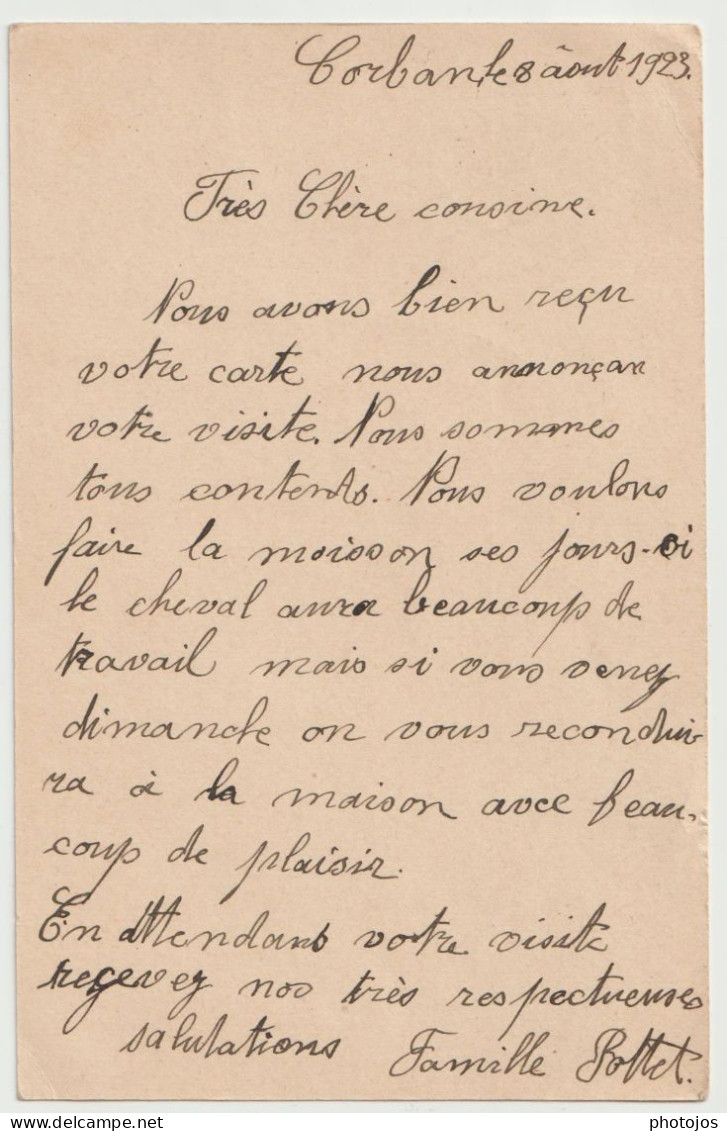 Corban, le 8 âout 1923.
Très Chère cousine.
Nous avons bien reçu
votre carte nous annonçan
votre visite. Nous sommes
tous contents. Nous voulons
faire la moisson ses jours-si
le cheval aura beaucoup de
travail mais si vous venez
dimanche on vous recondui-
ra à la maison avce beau-
coup de plaisir.
En attendans votre visite
reçevez nos très respectueuses
salutations Famille Bottet.
photojos